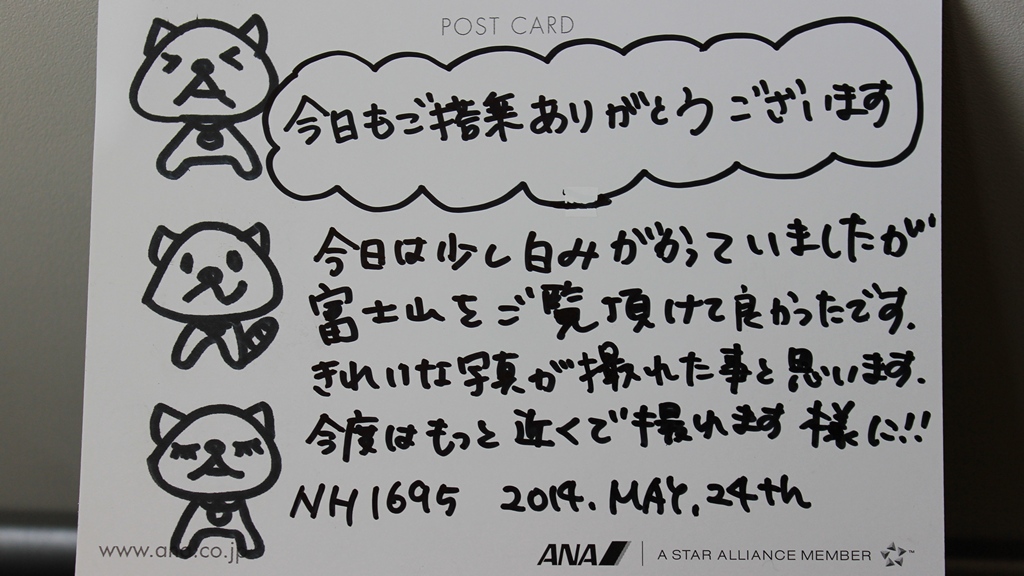 POST CARD
今日もご搭乗ありがとうございます
今日は少し白みがかっていましたが
富士山をご覧頂けて良かったです.
きれいな写真が撮れた事と思います.
今度はもっと近くで撮れます様に!!
NH1695 2014. MAY. 24th
www.ana.co.jp
ANA A STAR ALLIANCE MEMBER